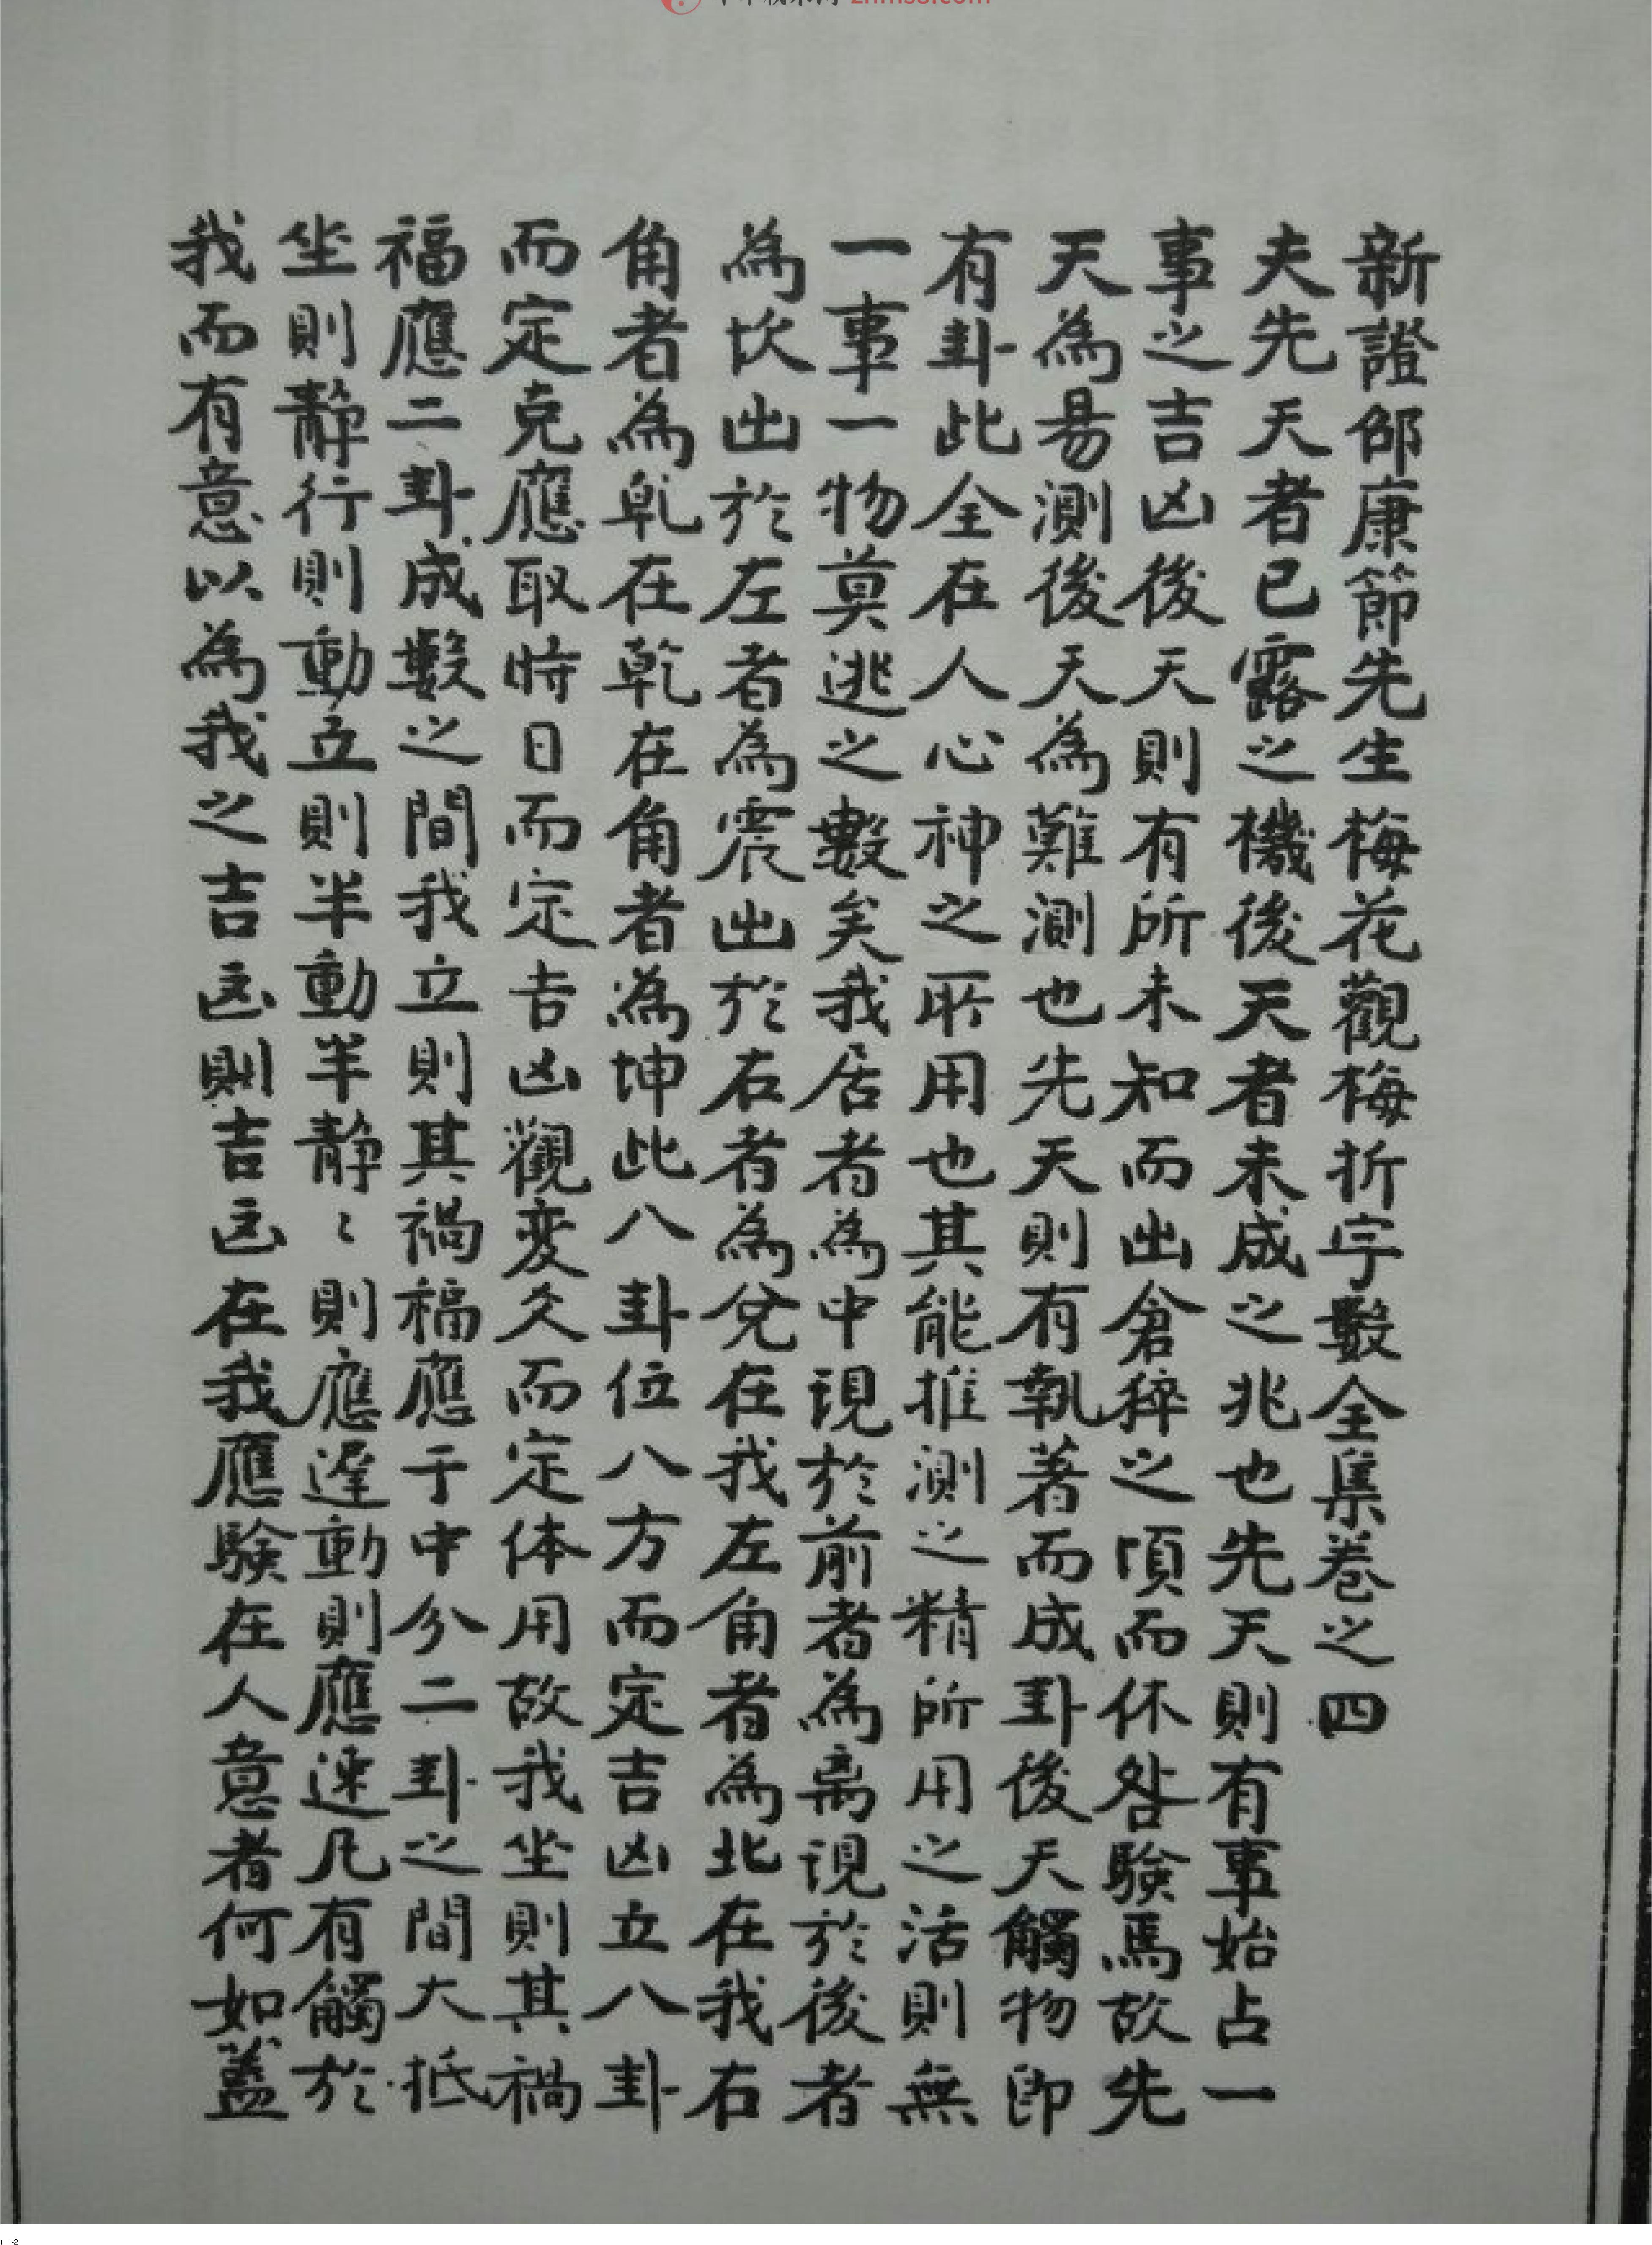 新證邵康節先生梅花觀梅折字數全集卷之四
夫先天者已露之機後天者未成之兆也先天則有事始占一
事之吉凶後天則有所未知而出倉猝之頃而休咎驗焉故先
天為易測後天為難測也先天則有執著而成卦後天觸物即
有卦此全在人心神之所用也其能推測之精所用之活則無
一事一物莫逃之數矣我居者為中現於前者為离現於後者
為坎出於左者為震出於右者為兌在我左角者為北在我右
角者為乹在乾在角者為坤此八卦位八方而定吉凶立八卦
而定克應取時日而定吉凶觀变爻而定体用故我坐則其禍
福應二卦成數之間我立則其禍福應于中分二卦之間大抵
坐則靜行則動立則半動半静〻則應遲動則應速凡有觸於
我而有意以為我之吉凶則吉凶在我應驗在人意者何如蓋
zhms8.com